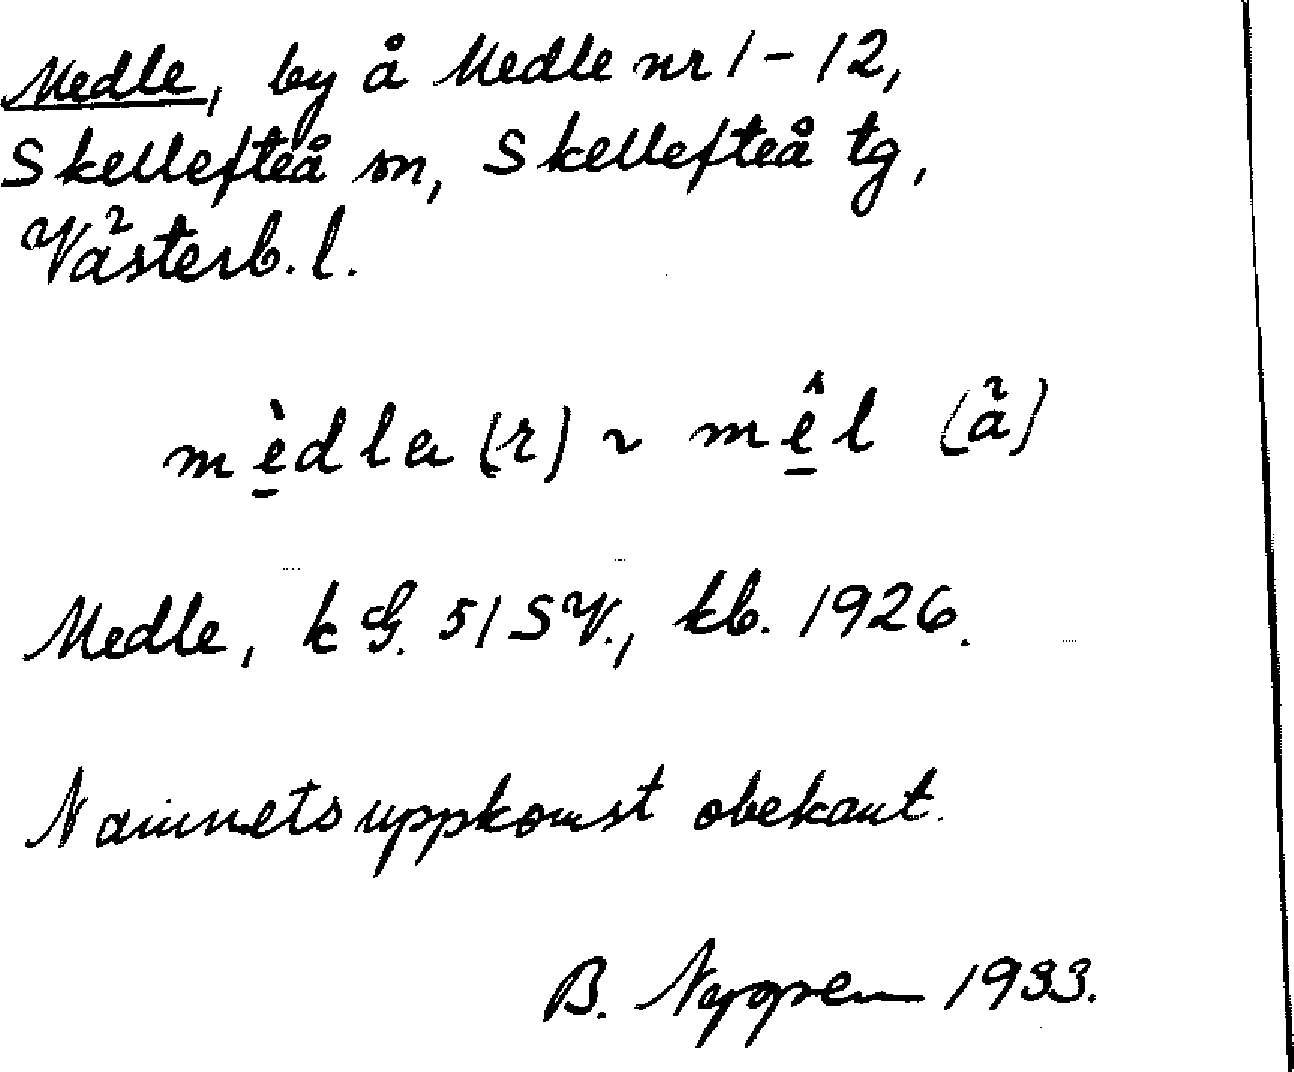 Medle, by å Medle nr 1-12,
Skellefteå sn, Skellefteå tg,
Västerb. l.
mè̱dla (r) ~ mê̱l (ä)
Medle, k G. 51 SV., kb. 1926.
Namnets uppkomst obekant.
B. Nygren 1933.